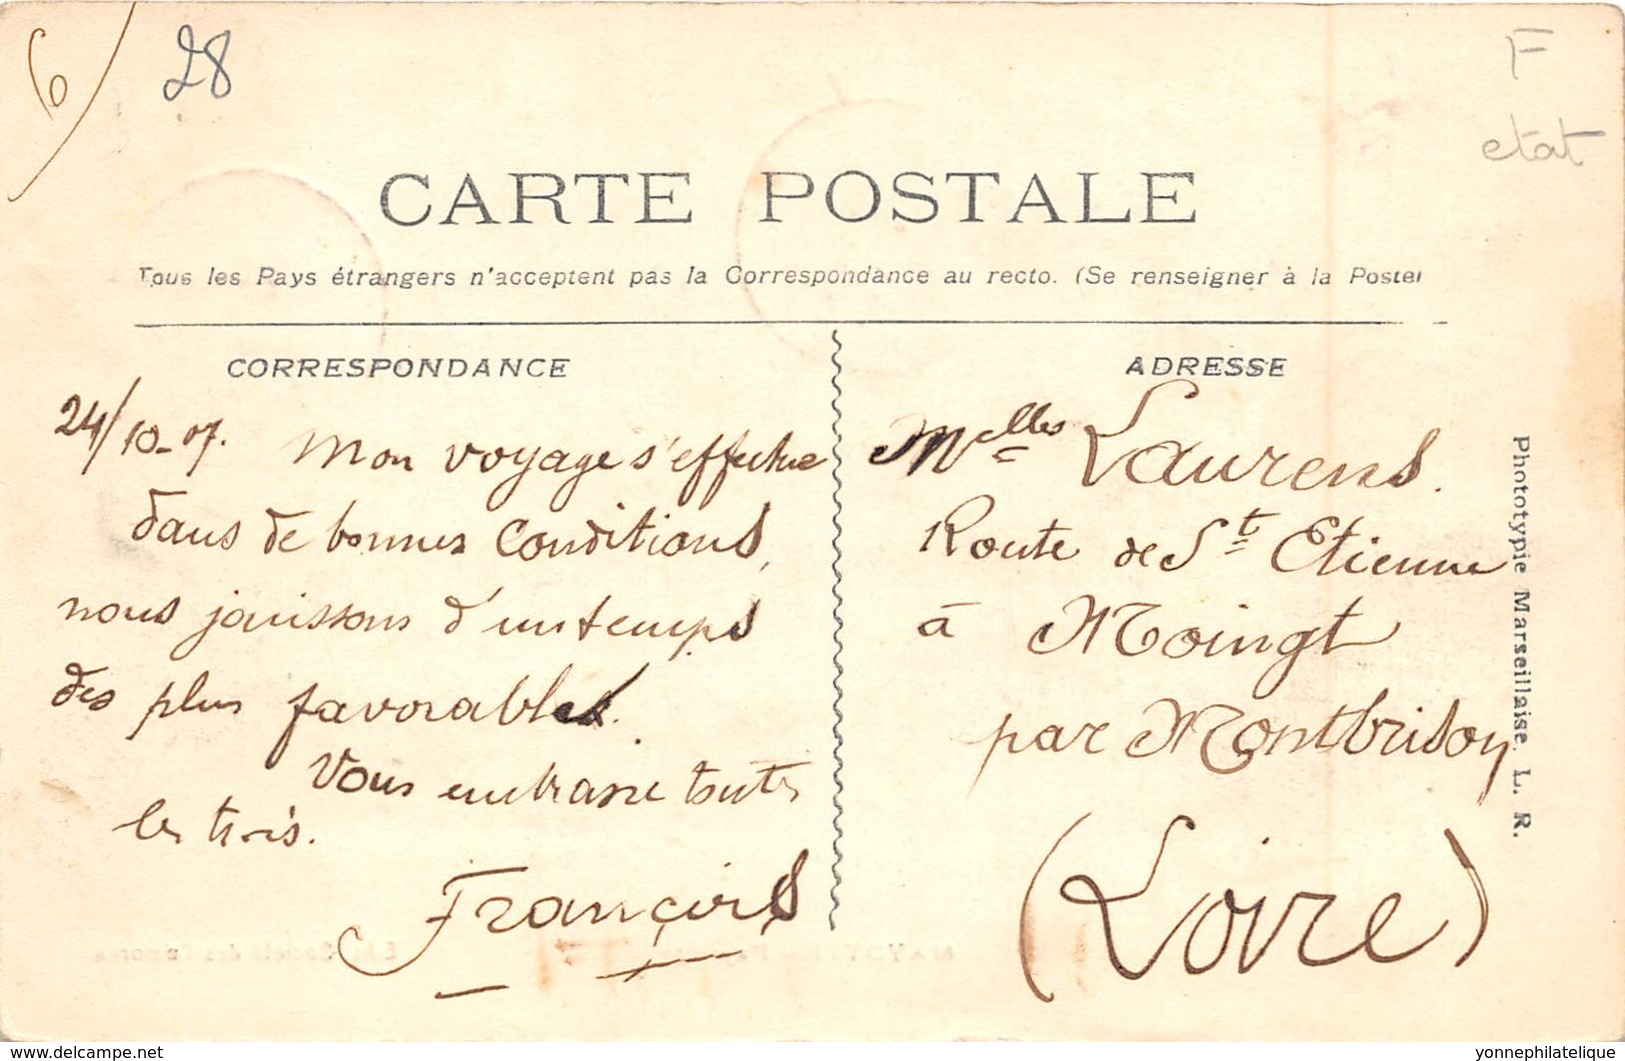 6
28
F
etat
CARTE POSTALE
Tous les Pays étrangers n'acceptent pas la Correspondance au recto. (Se renseigner à la Poste)
CORRESPONDANCE
24/10-07. Mon voyage s'effectue
dans de bonnes conditions,
nous jouissons d'un temps
des plus favorables.
Vous embrasse toutes
les trois.
François
ADRESSE
Melles Laurens.
Route de St Etienne
à Moingt
par Montbrison
(Loire)
Phototypie Marseillaise. L. R.
https://www.delcampe.net
yonnephilatelique